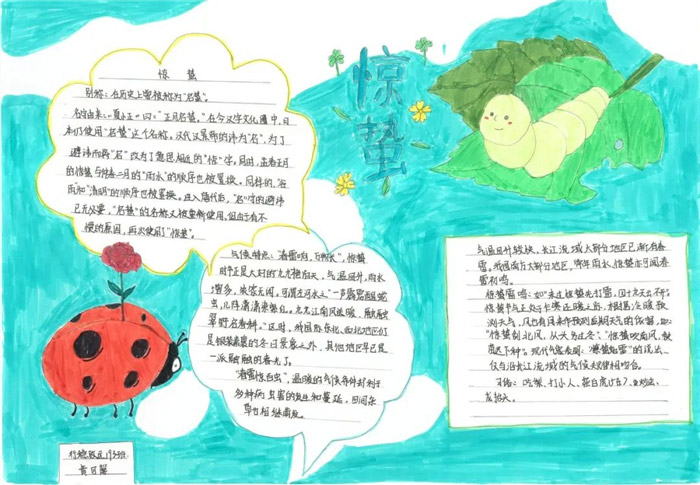 惊蛰
惊蛰
别称:在历史上曾被称为“启蛰”。
名的由来:《夏小正》曰:“正月启蛰。”在今汉字文化圈中,日
本仍使用“启蛰”这个名称。汉代汉景帝的讳为“启”,为了
避讳而将“启”改为了意思相近的“惊”字。同时,孟春正月
的惊蛰与仲春二月的“雨水”的顺序也被置换。同样的,“谷
雨”和“清明”的顺序也被置换。进入唐代后,“启”字的避讳
已无必要,“启蛰”的名称又被重新使用。但由于有不
惯的原因,再次使用了“惊蛰”。
气候特点:“春雷响,万物长”,惊蛰
时节正是大好的“九九”艳阳天,气温回升,雨水
增多,
虫,几阵潇潇
草野名春鲜。”这时,我国除东北、西北地区仍
是银装素裹的冬日景象之外,其他地区早已是
一派融融的春光了。
“春雷惊百虫”,温暖的气候条件利于
多种病虫害的发生和蔓延,田间杂
草也相继萌发。
气温回升较快,长江流域大部分地区已渐有春
雷。我国南方大部分地区,
雷初鸣。
惊蛰雷鸣:如“未过惊蛰先打雷,四十九天云不开”;
惊蛰节
测天气,也有用来作预测后期天气的依据,如:
“惊蛰刮北风,从头另过冬”;“惊蛰吹南风,秧
苗迟下种”。现代气象表明:“惊蛰始雷”的说法
仅与沿长江流域的气候规律相吻合。
习俗:吃梨、打小人、祭白虎